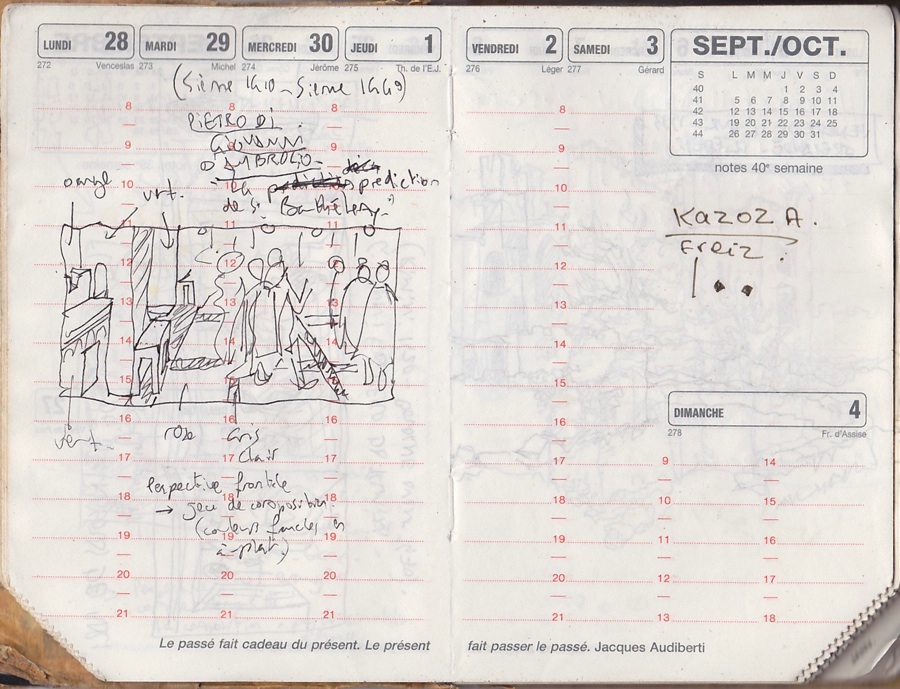 LUNDI 28
MARDI 29
MERCREDI 30
JEUDI 1
272 Venceslas
273 Michel
274 Jérôme
275 Th. de l'E.J.
(Sienne 1410 - Sienne 1449)
PIETRO DI
GIOVANNI
D'AMBROGIO
"la prédiction
de St Barthélemy"
orange
vert.
8 8 8
9 9 9
10 10 10
11 11 11
12 12 12
13 13 13
14 14 14
15 15 15
16 16 16
17 17 17
18 18 18
19 19 19
20 20 20
21 21 21
vert
rose
Gris
Clair
Perspective frontale
→ jeu de composition.
(couleurs franches en
à-plat)
Le passé fait cadeau du présent. Le présent
VENDREDI 2
SAMEDI 3
276 Léger
277 Gérard
SEPT./OCT.
S L M M J V S D
40 1 2 3 4
41 5 6 7 8 9 10 11
42 12 13 14 15 16 17 18
43 19 20 21 22 23 24 25
44 26 27 28 29 30 31
notes 40e semaine
KAZOZ A.
Freiz ?
!..
8
9
10
11
12
13
14
15
16
17
18
19
20
21
DIMANCHE 4
278 Fr. d'Assise
9 14
10 15
11 16
12 17
13 18
fait passer le passé. Jacques Audiberti